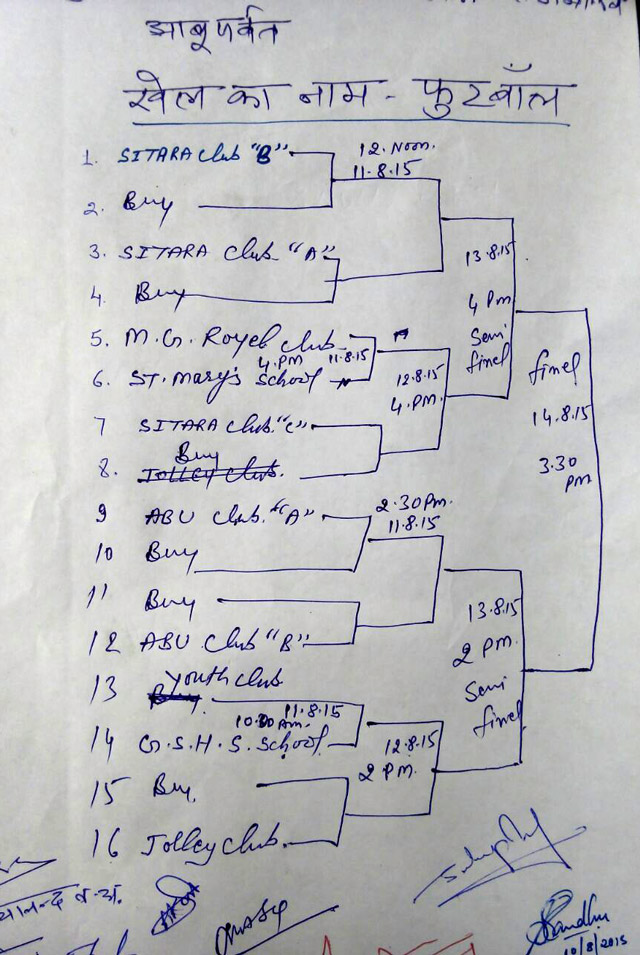 आबू पर्वत
खेल का नाम - फुटबॉल
1. SITARA club "B"
12. Noon.
11.8.15
2. Buy
3. SITARA club "A"
13.8.15
4 Pm
Semi
finel
4. Buy
5. M.G. Royel club
4.PM 11.8.15
6. ST. Mary's School
12.8.15
4.PM.
finel
14.8.15
3.30
PM
7 SITARA club "C"
Buy
8. Jolley club.
9 ABU club. "A"
2.30 Pm.
11.8.15
10 Buy
11 Buy
12 ABU club "B"
13.8.15
2 PM.
Semi
finel
13 Youth club
Buy.
11.8.15
10.00 Am.
14 G.S.H.S. School
12.8.15
2 PM.
15 Buy.
16 Jolley club.
Sandhu
10/8/2015